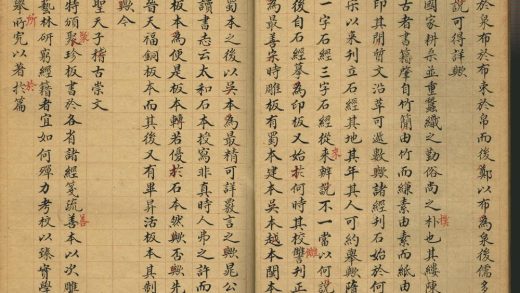 於泉布於布束於帛而後鄭以布為泉後儒多
說可得詳歟
國家耕桑並重蠶織之勤俗尚之朴也其縷陳
樸
古者書籍肇自竹簡由竹而縑素由素而紙由
印其間文沿革可遞數歟諸經刊石始於何
以來刊立石經其地其年其人可約舉歟隋
一字石經三字石經從來辨說不一當以何說
後自石經摹為印板又始於何時其校讐刊正
是最善宋時雕板有蜀本建本吳本越本閩本
蜀本之後以吳本為最精可詳言之歟晁公
讀書志云太和石本授寫非真時人弗之許而
板本為便是板本轉若優於石本然歟否歟先
晉天福銅板本而其後又有畢昇活板本其制
歟今
聖天子稽古崇文
特頒聚珍板書於各省諸經箋疏善本以次雕
善
藝林研窮經籍者宜如何殫力考校以臻實學
舉所究以著於篇
所
於